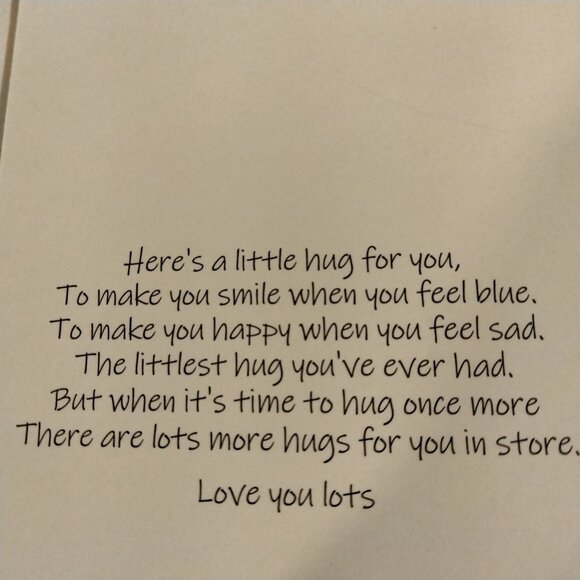 Here's a little hug for you,
To make you smile when you feel blue.
To make you happy when you feel sad.
The littlest hug you've ever had.
But when it's time to hug once more
There are lots more hugs for you in store.
Love you lots